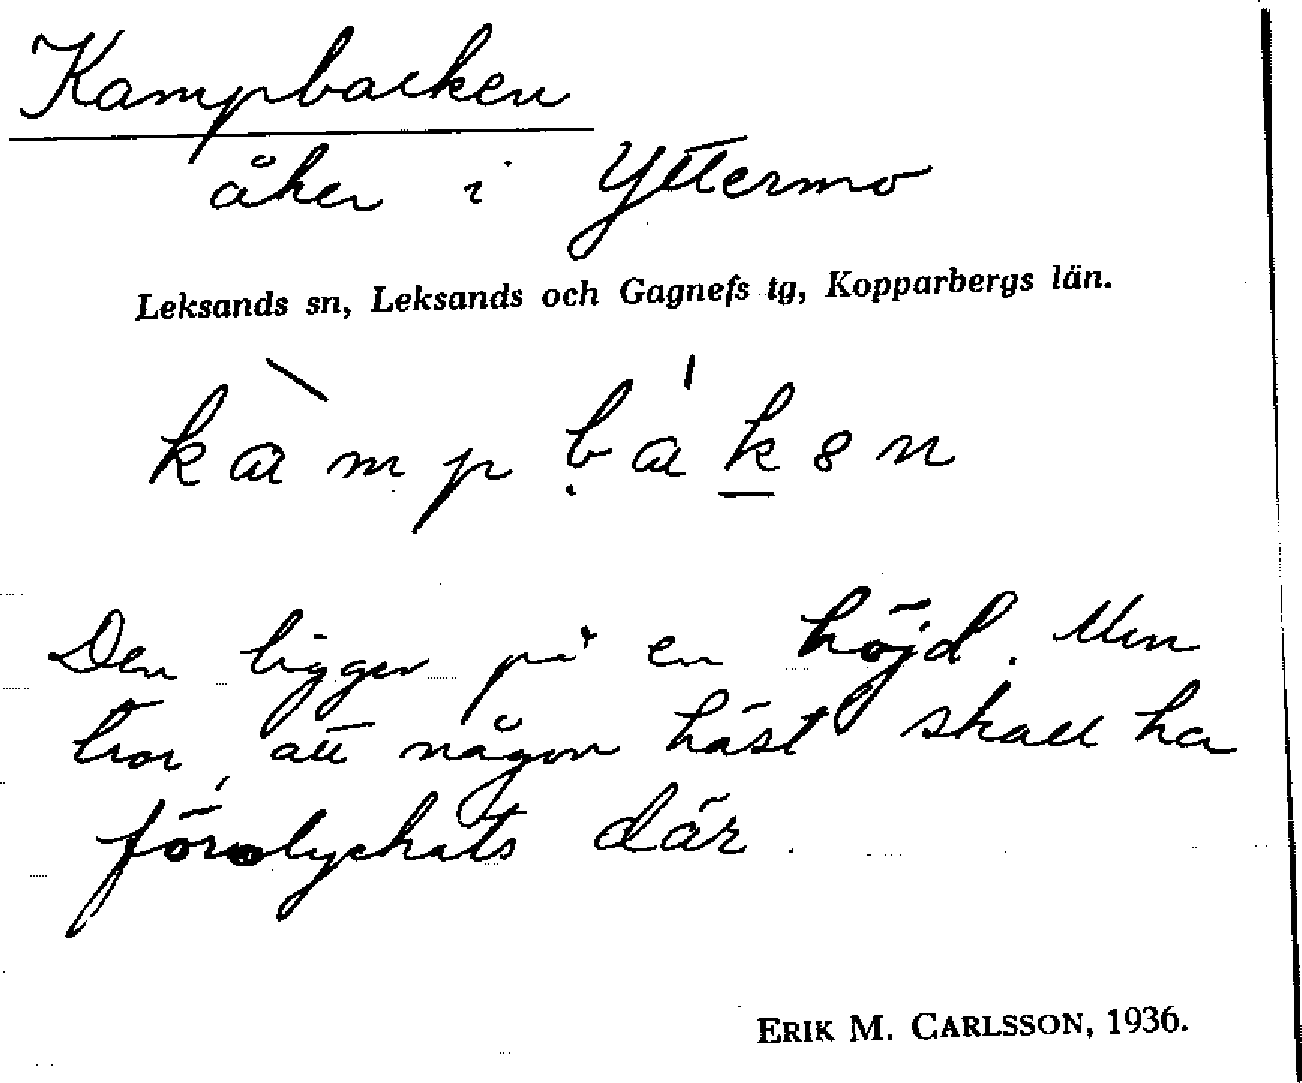 Kampbacken
åker i Yttermo
Leksands sn, Leksands och Gagnefs tg, Kopparbergs län.
Den ligger på en höjd. Men
tror, att någon häst skall ha
förolyckats där.
ERIK M. CARLSSON, 1936.